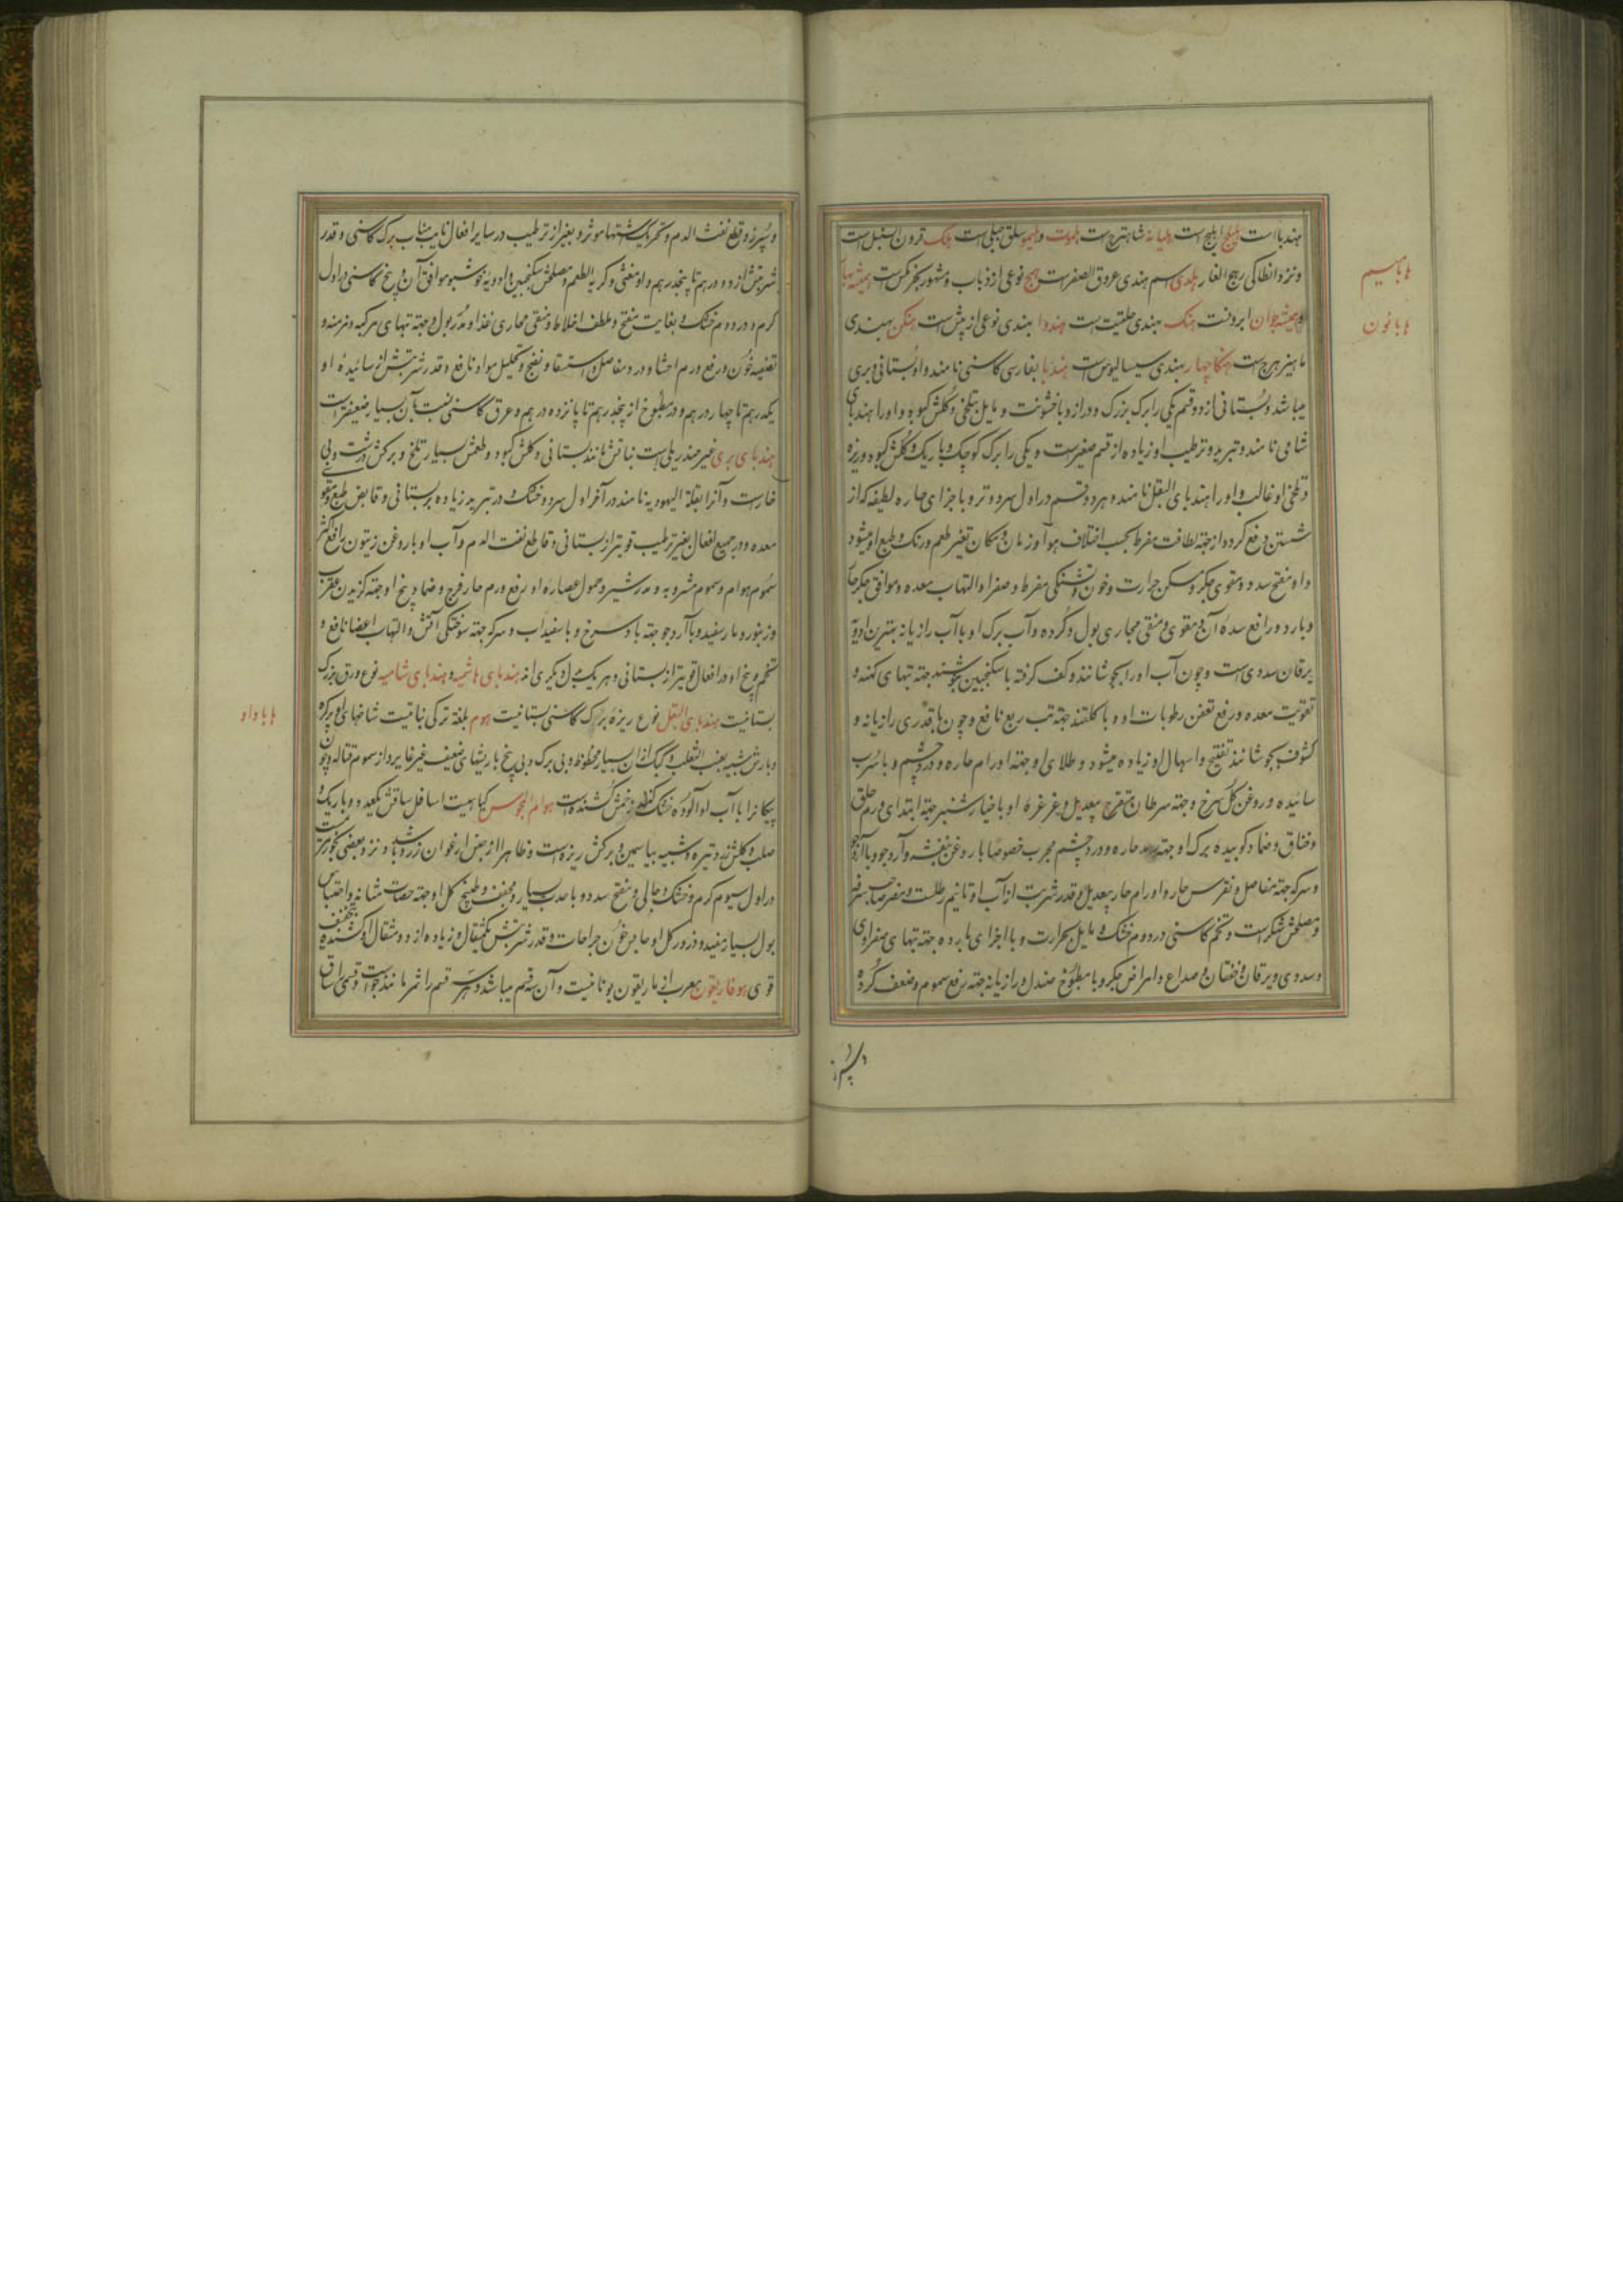 هندبا است هلیلج اهلیلج است هلیانه شاهترج است هلموت و هلیمو سلق جبلی است هلک قرون السنبل است
و نزد انطاکی رهج الغار هلدی اسم هندی عروق الصفر است همج نوعی از ذباب و مشهور بخرمکس است همیشه بهار
و همیشه جوان ابرونست هنک بهندی حلتیت است هندوا بهندی نوعی از بیش است هنکن بهندی
ماهیزهرج است هنکاجهار بهندی سیسالیوس است هندبا بفارسی کاسنی نامند و او بستانی و بری
میباشد و بستانی از دو قسم یکی را برک بزرک و دراز و با خشونت و مایل بتلخی و کلش کبود و او را هندبای
شامی نامند و تبرید و ترطیب او زیاده از قسم صغیر است و یکی را برک کوچک و باریک و کلش کبود و ریزه
و تلخی او غالب و او را هندبای البقل نامند و هر دو قسم در اول سرد و تر و با اجزای حاره لطیفه که از
شستن رفع کردد از جهة لطافت مفرط بحسب اختلاف هوا و زمان و مکان تغیر طعم و رنک و طبع او میشود
و او مفتح سدد و مقوی جکر و مسکن حرارت و خون و تشنکی مفرط و صفرا و التهاب معده و موافق جکر حار
و بارد و رافع سده آن و مقوی و منقی مجاری بول و کرده و آب برک او با آب رازیانه بهترین ادویه
یرقان سددی است و چون آب او را بجوشانند و کف کرفته با سکنجبین بنوشند جهة تبهای کهنه و
تقویت معده و رفع تعفن رطوبات او و با کلقند جهة تب ربع نافع و چون با قدری رازیانه و
کشوث بجوشانند تفتیح و اسهال او زیاده میشود و طلای او جهة اورام حاره و درد چشم و با سرب
سائیده و روغن کل سرخ و جهة سرطان متقرح بیعدیل و غرغره او با خیارشنبر جهة ابتدای ورم حلق
و خناق و ضماد کوبیده برک او جهة رمد حاره و درد چشم مجرب خصوصا با روغن بنفشه و آرد جو و با آرد جو
و سرکه جهة مفاصل و نقرس حار و اورام حار بیعدیل و قدر شربت از آب او تا نیم رطلست و مضر صاحب سرفه
و مصلحش شکر است و تخم کاسنی در دوم خشک و مایل بحرارت و با اجزای بارده جهة تبهای صفراوی
و سددی و یرقان و خفقان و صداع و امراض جکر و با مطبوخ صندل و رازیانه جهة رفع سموم و ضعف کرده
و سپرز
هابا سیم
هابا نون
و سپرز و قطع نفث الدم و تحریک اشتها موثر و بغیر از ترطیب در سایر افعال نایب مناب برک کاسنی و قدر
شربتش از دو درهم تا پنجدرهم و او مغثی و کریه الطعم و مصلحش سکنجبین و ادویه خوشبو موافق آن و بیخ کاسنی در اول
کرم و در دوم خشک و بغایت مفتح و ملطف اخلاط و منقی مجاری غذا و مدر بول و جهة تبهای مرکبه و مزمنه و
تصفیه خون و رفع ورم احشا و درد مفاصل و استسقا و نضج و تحلیل مواد نافع و قدر شربتش از سائیده او
یکدرهم تا چهار درهم و در مطبوخ از پنجدرهم تا پانزده درهم و عرق کاسنی نسبت بآن بسیار ضعیفتر است
هندبای بری غیر صندریلی است نباتش مانند بستانی و کلش کبود و طعمش بسیار تلخ و برکش درشت و بی
خار است و آنرا بقلة الیهودیه نامند در آخر اول سرد و خشک و در تبرید زیاده بر بستانی و قابض طبع و مقوی
معده و در جمیع افعال بغیر ترطیب قویتر از بستانی و قاطع نفث الدم و آب او با روغن زیتون رافع اکثر
سموم هوام و سموم مشروبه و مدر شیر و حمول عصاره او رفع ورم حار فرج و ضماد بیخ او جهة کزیدن عقرب
و زنبور و مار سفید و با آرد جو جهة باد سرخ و با سفیداب و سرکه جهة سوختکی آتش و التهاب اعضا نافع و
تخم و بیخ او در افعال قویتر از بستانی و هر یک بدل دیکری اند هندبای هاشمیه و هندبای شامیه نوع ورق بزرک
بستانیست هندبای البقل نوع ریزه برک کاسنی بستانیست هوم بلغة ترکی نباتیست شاخهای او پرکره
و بارش شبیه بعنب الثعلب و کبک از آن بسیار محظوظ و بی برک و بی بیخ با ریشهای ضعیف غیر غایر و از سموم قتاله و چون
پیکانرا با آب او آلوده خشک کنند زخمش کشنده است هوام المجوس کیاهیست اسافل ساقش یکعدد و باریک و
صلب و کلش زرد تیره و شبیه بیاسمین و برکش ریزه است و ظاهرا از بعض ارغوان زرد باشد و نزد بعضی بخور مریم است
در اول سیوم کرم و خشک و جالی و مفتح سدد و با حدت بسیار و مجفف و طبیخ کل او جهة حصات مثانه و احتباس
بول بسیار مفید و ذرور کل او حابس خون جراحات و قدر شربتش یکمثقال و زیاده از دو مثقال او کشنده مجفف
قوی هوفاریقون معرب از یاریقون یونانیست و آن سه قسم میباشد و هر سه قسم را ثمر مانند جو است و قسمی را ساق
هابا واو